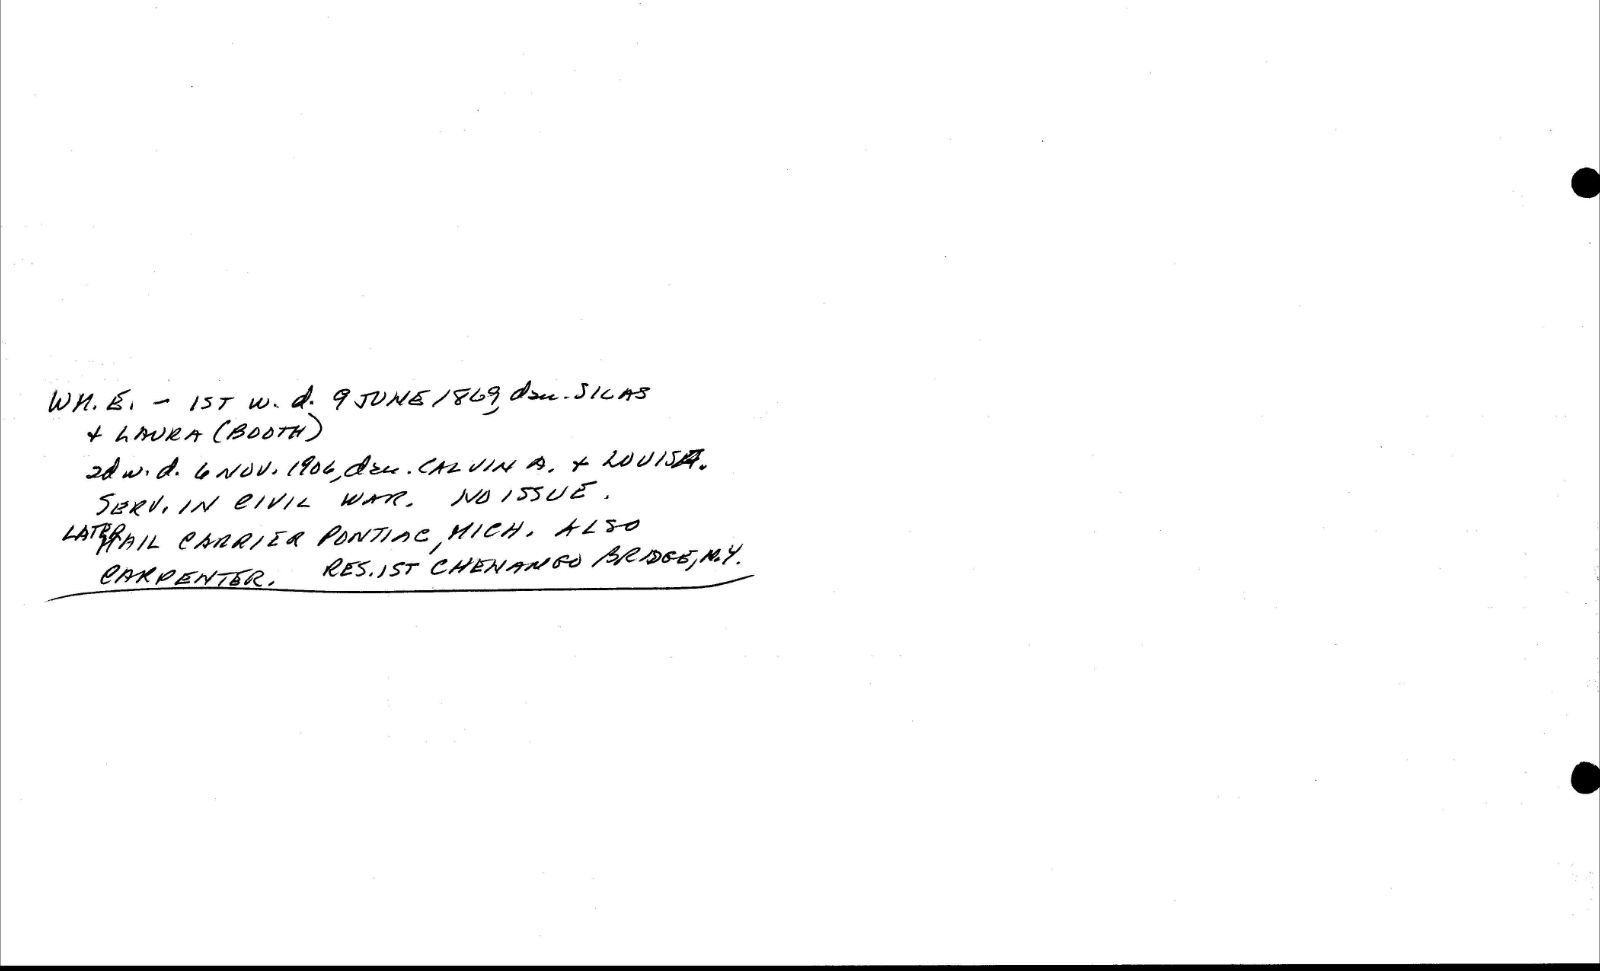 WM. E. – 1ST w. d. 9 JUNE 1869, dau. SILAS
+ LAURA (BOOTH)
2d w. d. 6 NOV. 1906, dau. CALVIN A. + LOUISA.
SERV. IN CIVIL WAR. NO ISSUE.
LATER MAIL CARRIER PONTIAC, MICH. ALSO
CARPENTER. RES. 1ST CHENANGO BRIDGE, N.Y.